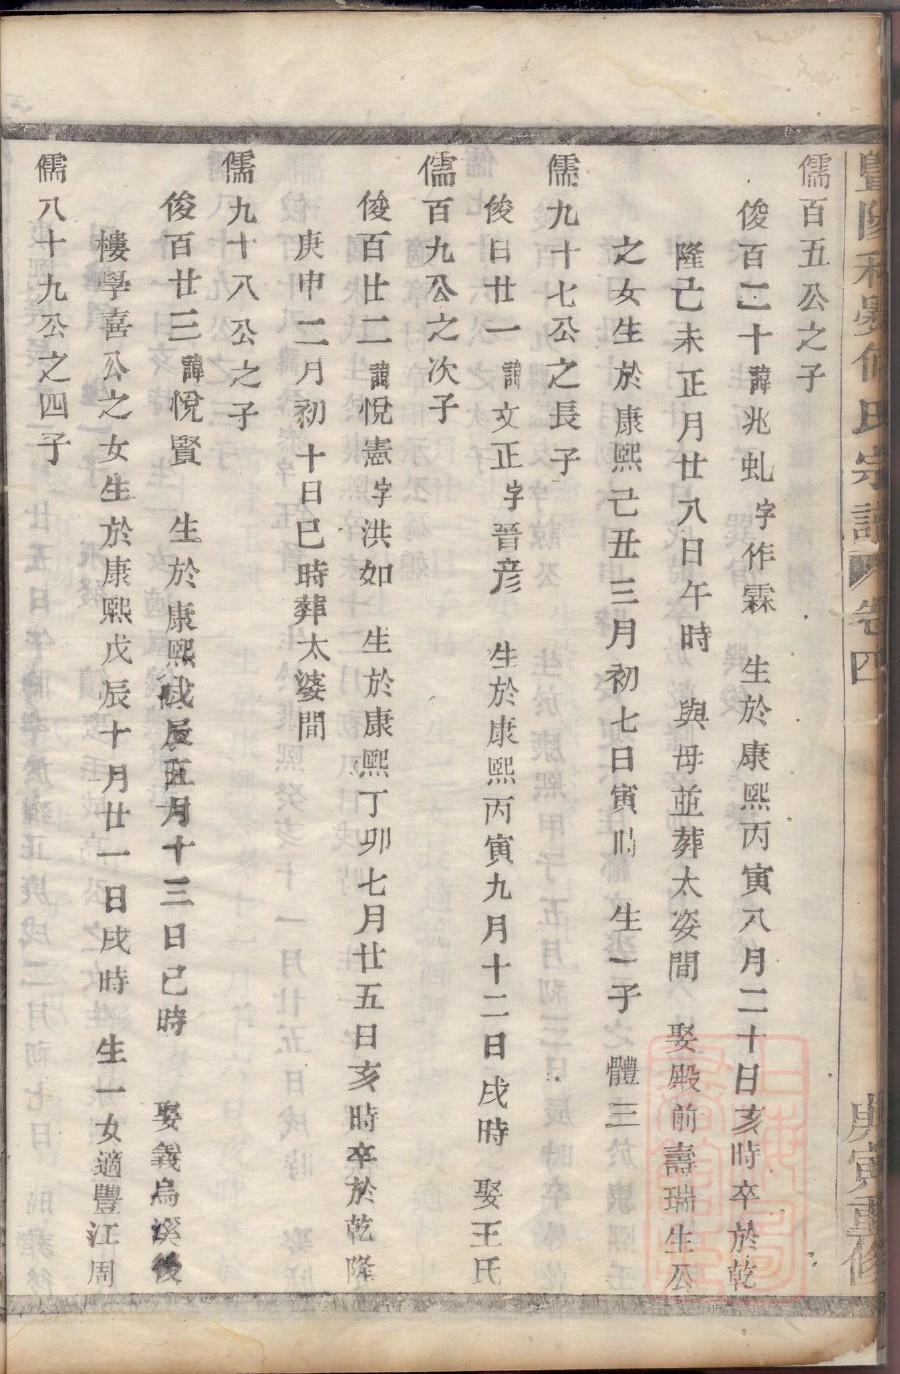 暨陽 氏宗譜 卷四 庚寅重修
儒百五公之子
俊百二十諱兆虬字作霖 生於康熙丙寅八月二十日亥時卒於乾
隆己未正月廿八日午時 與母並葬太婆間 娶殿前壽瑞生公
之女生於康熙己丑三月初七日寅時 生一子 體三
儒九十七公之長子
俊百廿一諱文正字晉彦 生於康熙丙寅九月十二日戌時 娶王氏
儒百九公之次子
俊百廿二諱悅憲字洪如 生於康熙丁卯七月廿五日亥時卒於乾隆
庚申二月初十日巳時葬太婆間
儒九十八公之子
俊百廿三諱悅賢 生於康熙戊辰五月十三日巳時 娶義烏溪後
樓學喜公之女生於康熙戊辰十月廿一日戌時 生一女適豐江周
儒八十九公之四子